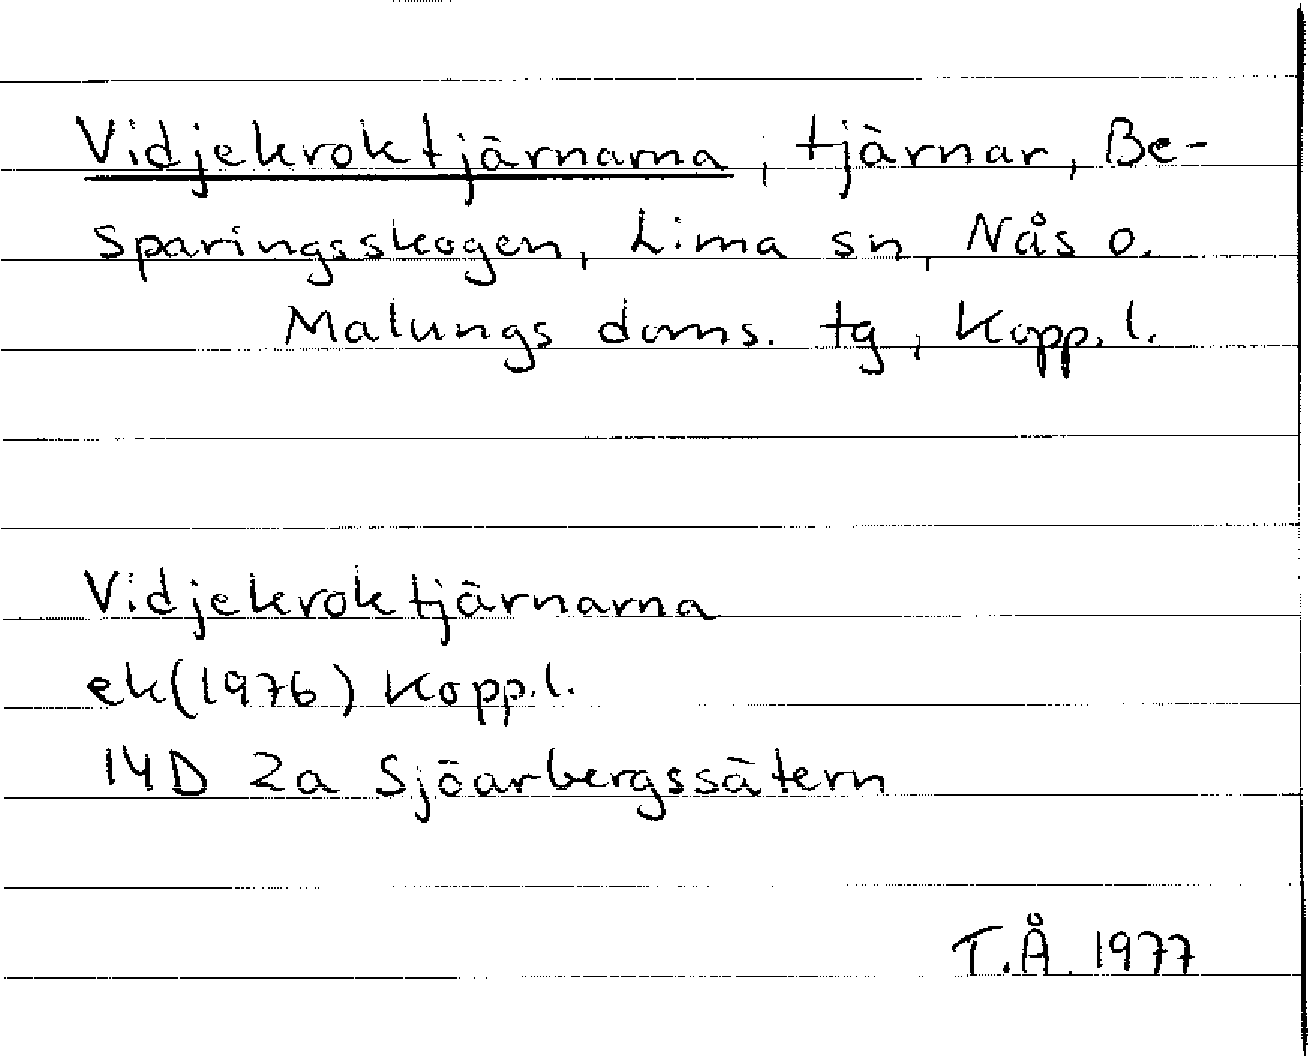 Vidjekroktjärnarna, tjärnar, Be-
sparingsskogen, Lima sn, Nås o.
Malungs doms. tg, Kopp. l.
Vidjekroktjärnarna
ek(1976) Kopp.l.
14D 2a Sjöarbergssätern
T.Å. 1977